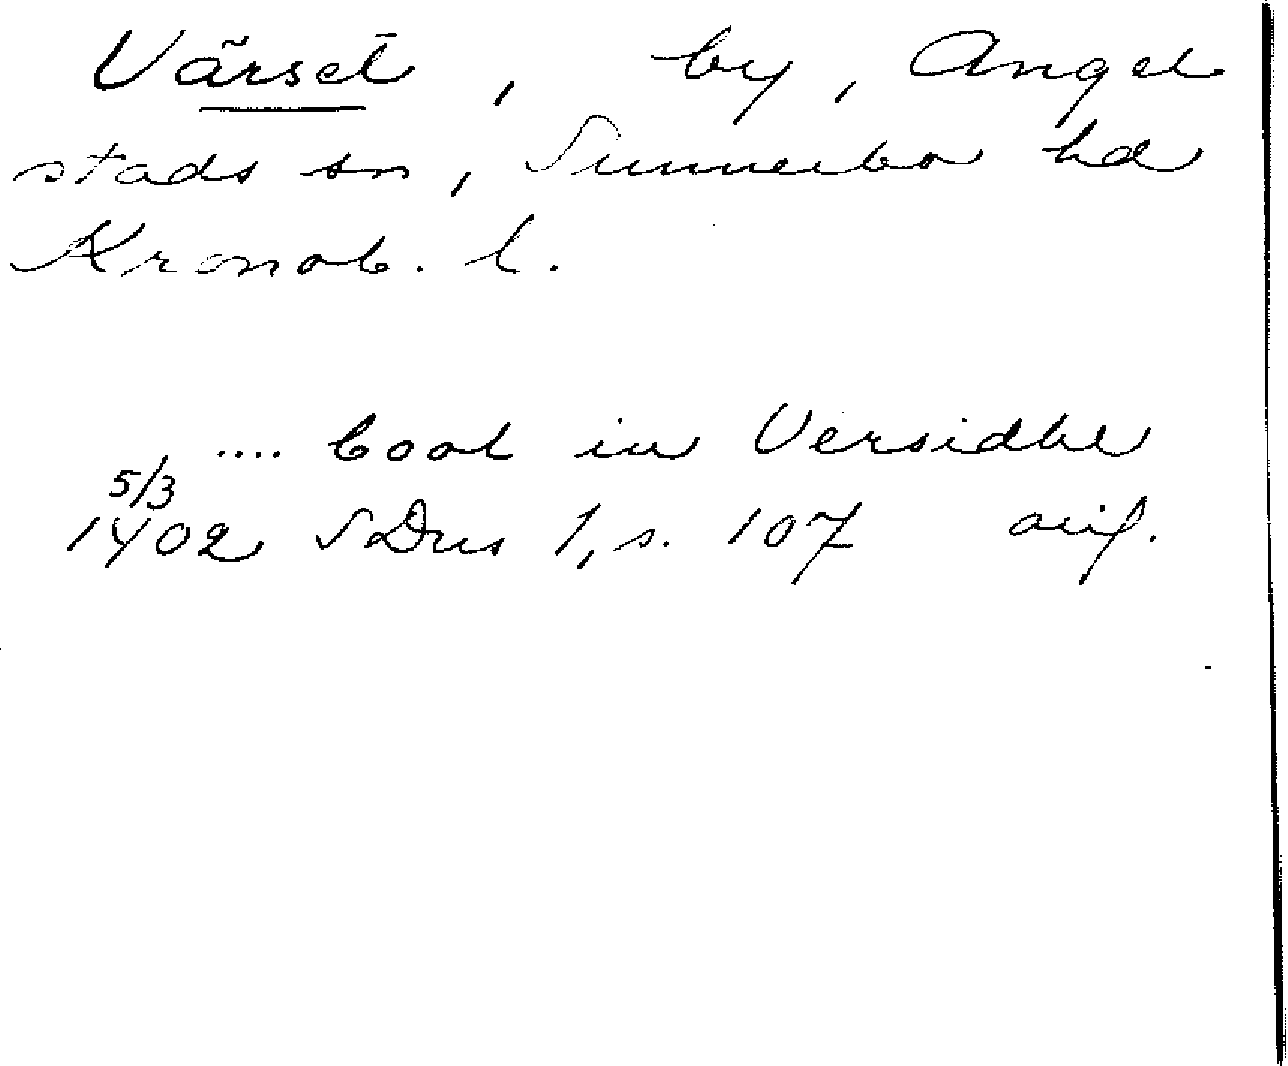 Värset, by, Angel
stads sn, Sunnerbo hd
Kronob. l.
.... Coal in Versidhe
5/3
1402 SDns 1, s. 107 avif.